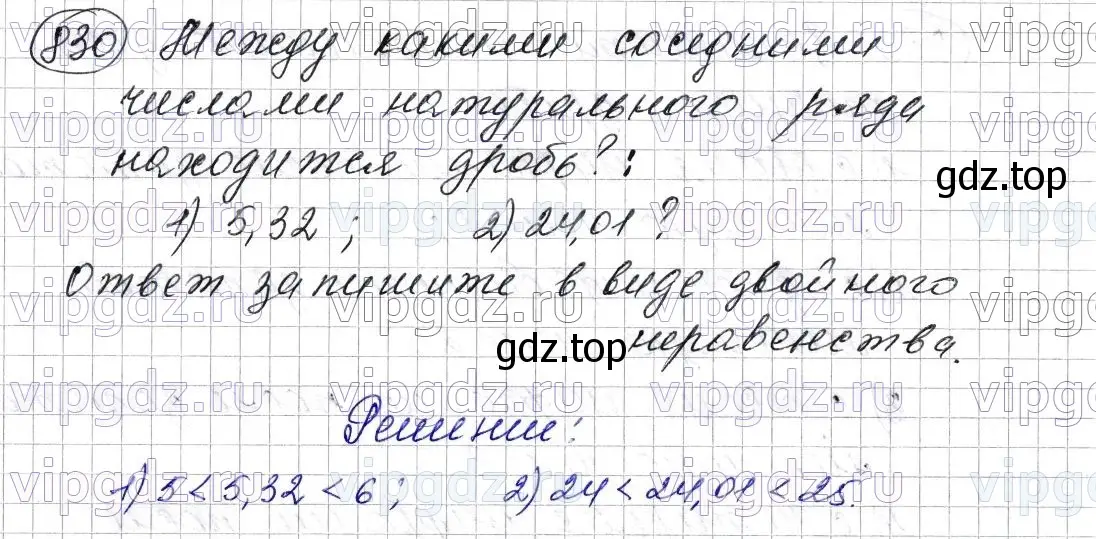 830 Между какими соседними
числами натурального ряда
находится дробь?:
gdz.top
1) 5,32 ; 2) 24,01 ?
Ответ запишите в виде двойного
неравенства.
gdz.top
Решение:
1) 5 < 5,32 < 6 ; 2) 24 < 24,01 < 25.
vipgdz.ru